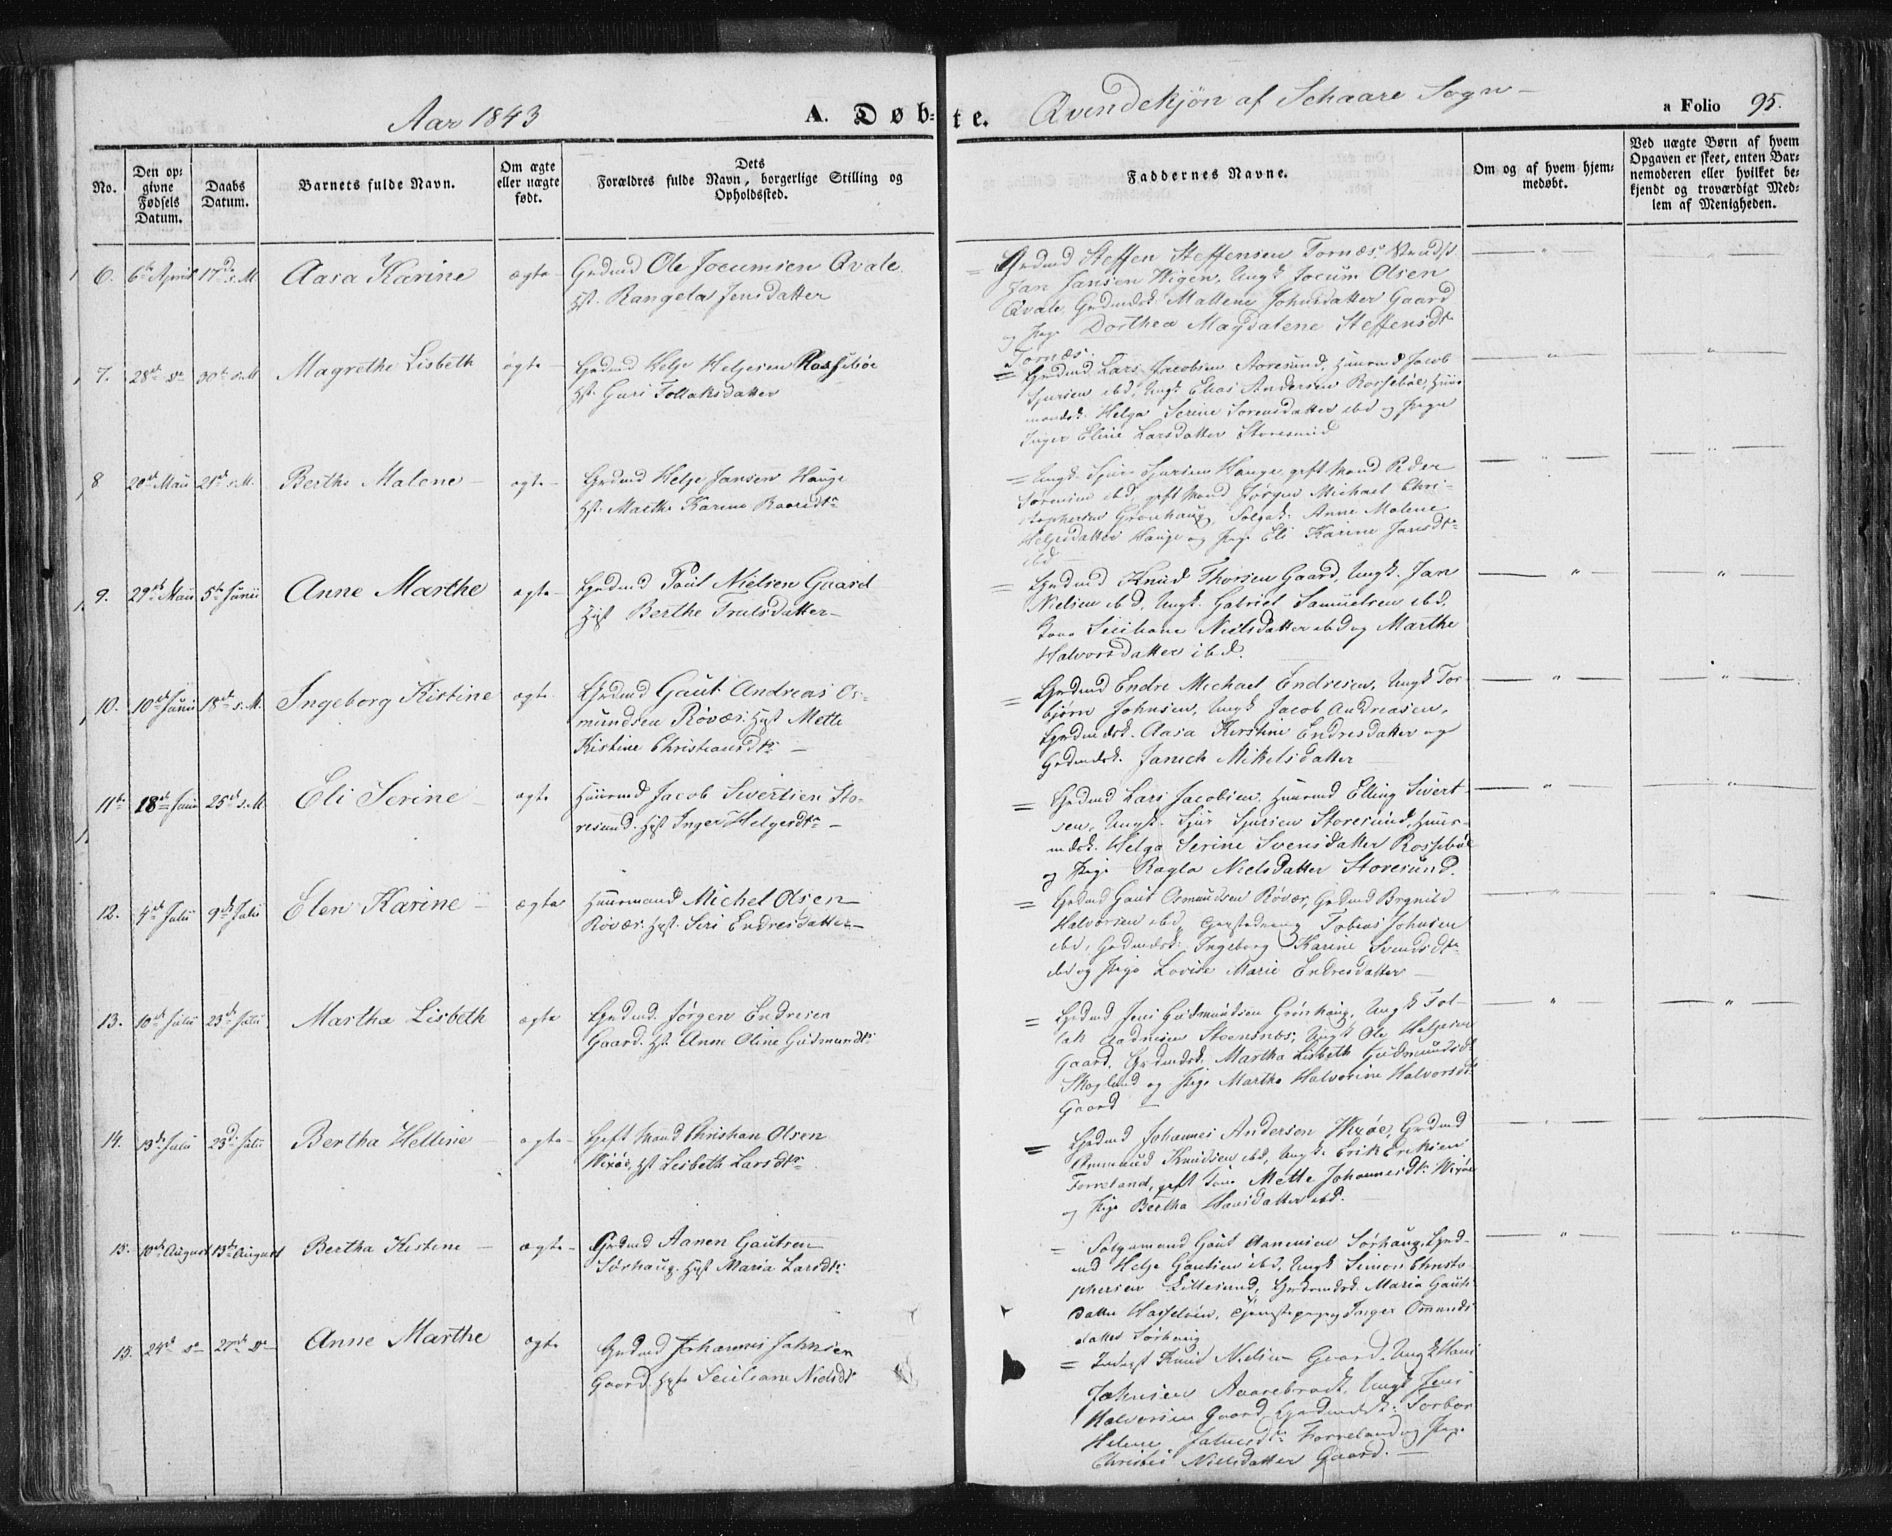 Aar 1843
A. Døbte.
Qvindekjøn af Schaare Sogn
a Folio 95.
No.
Den opgivne Fødsels Datum.
Daabs Datum.
Barnets fulde Navn.
Om ægte eller uægte født.
Dets Forældres fulde Navn, borgerlige Stilling og Opholdssted.
Faddernes Navne.
Om og af hvem hjemmedøbt.
Ved uægte Børn af hvem Opgaven er skeet, enten Barnemoderen eller hvilket bekjendt og troværdigt Medlem af Menigheden.
6. 6te April 17de s. M. Aasa Karine ægte Grdmd Ole Jocumsen Qvale.
Hst. Rangela Jensdatter
Grdmd Steffen Steffensen Tornæs,
Jan Jansen Wigen, Ungk. Jocum Olsen
Qvale, Grdmdsk. Mallene Johnsdatter Gaard
og Pige Dorthea Magdalene Steffensdtr
Tornæs.
7. 28de do 30te s. M. Magrethe Lisbeth ægte Grdmd Helje Heljesen Rossebøe
Hst. Guri Tollaksdatter
Grdmd Lars Jacobsen Storesund, Huusmd Jacob
Sjursen ibd, Ungk. Elias Andersen Rossebøe, Huus
mandsk. Helga Serine Sorensdatter ibd og Pige
Inger Eline Larsdatter Storesund
8 20de Maii 21de s. M. Berthe Malene ægte Grdmd Helje Jansen Hauge
Hst. Marthe Karine
Ungk. Sjur Sjursen Hauge, gift Mand Peder
Sorensen ibd, gift Mand Jørgen Michael Chri-
stophersen Grønhaug, Anne Malene
Heljesdatter Hauge og Pige Eli Karine Jansdtr
ibd
9. 29de Maii 5te Junii Anne Marthe ægte Grdmd Poul Nielsen Gaard
Hst Berthe Trulsdatter
Grdmd Knud Thorsen Gaard, Ungk. Jan
Nielsen ibd, Ungk. Gabriel Samuelsen ibd,
Kone Siciliane Nielsdatter ibd og Marthe
Halvorsdatter ibd.
10. 10de Junii 18de s. M. Ingeborg Kistine ægte Grdmd Gaut Andreas Os-
mundsen Røvær. Hst Mette
Kistine Christiansdtr
Grdmd Endre Michael Endresen, Ungk Tor-
bjørn Johnsen, Ungk Jacob Andreasen,
Grdmdsk. Aasa Kirstine Endresdatter og
Grdmdsk. Janich Mikelsdatter
11te 18de Junii 25de s. M Eli Serine ægte Huusmd Jacob Sivertsen Sto-
resund. Hst Inger Helgesdtr
Grdmd Lars Jacobsen, Huusmd Elling Sivert-
sen, Ungk. Sjur Sjursen Storesund, Huus-
mdsk. Helga Serine Svensdatter Rossebøe
og Pige Ragla Nielsdatter Storesund.
12. 4de Julii 9de Julii Elen Karine ægte Huusmand Michel Olsen
Røvær. Hst. Siri Endresdatter
Grdmd Gaut Osmundsen Røvær, Grdmd Brynild
Halvorsen ibd, Tobias Johnsen
ibd, Grdmdsk: Ingeborg Karine Svendsdtr
ibd og Pige Lovise Marie Endresdatter
13. 10de Julii 23de Julii Martha Lisbeth ægte Grdmd. Jørgen Endresen
Gaard. Hst. Anne Oline Gudmundsdtr
Grdmd Jens Gudmundsen Grønhaug, Ungk Tol-
lak Aadnesen Steensnæs, Ungk Ole Helgesen
Gaard, Grdmdsk. Martha Lisbeth Gudmundsdtr
Skogland og Pige Martha Halvorine Halvorsdtr
Gaard
14. 13de Julii 23de Julii Bertha Helline ægte Gift Mand Christian Olsen
Wixøe, Hst Lisbeth Larsdtr
Grdmd Johannes Andersen Wixøe, Grdmd
Ommund Knudsen ibd, Ungk. Erik Eriksen
Førreland, gift Kone Mette Johannesdtr Wixøe
og Pige Bertha Hansdatter ibd.
15. 10de August 13de August Bertha Kistine ægte Grdmd Aanen Gautsen
Sørhaug. Hst Maria Larsdtr
Folgemand Gaut Aanensen Sørhaug, Grd-
md Helje Gautsen ibd, Ungk Simon Christo
phersen Lillesund, Grdmdsk Maria Gauts-
datter Hasseløen, Tjenestepige Inger Ommunds
datter Sørhaug
15. 24de do 27de do Anne Marthe ægte Grdmd Johannes Johnsen
Gaard. Hst Siciliane Nielsdtr
Knud Nielsen Gaard, Ungk Hans
Johnsen Aarebrodt, Ungk Jens
Halvorsen Gaard, Grdmdsk. Torbor
Helene Førreland og Pige
Christie Nielsdatter Gaard.